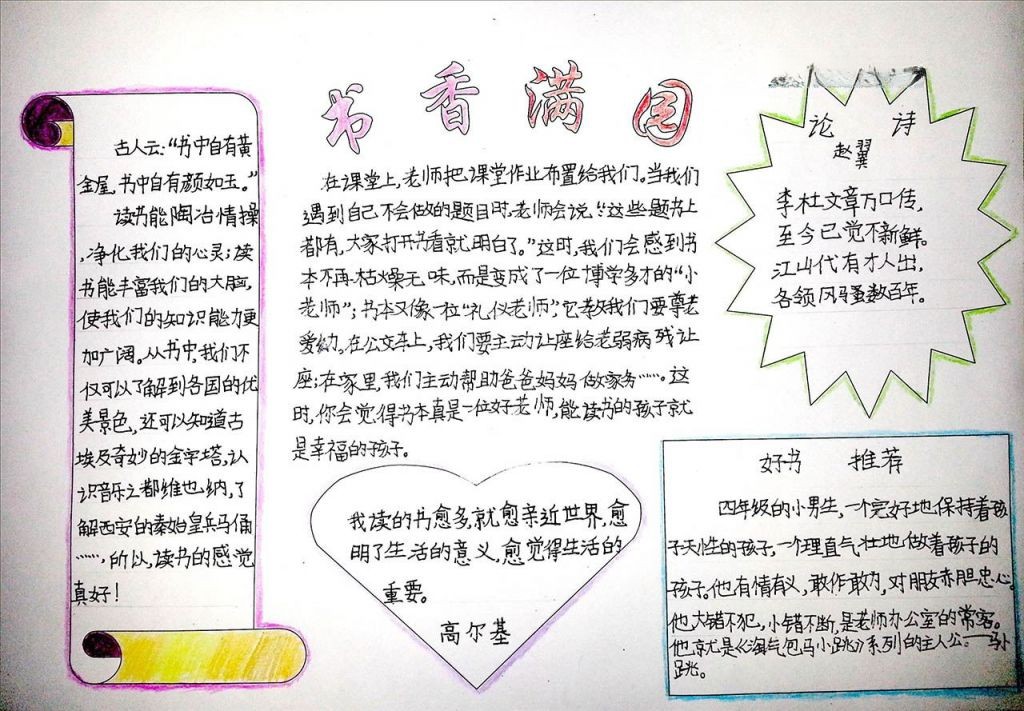 书香满园
古人云:“书中自有黄
金屋,书中自有颜如玉。”
读书能陶冶情操
,净化我们的心灵;读
书能丰富我们的大脑,
使我们的知识能力更
加广阔。从书中,我们不
仅可以了解到各国的优
美景色,还可以知道古
埃及奇妙的金字塔,认
识音乐之都维也纳,了
解西安的秦始皇兵马俑
……,所以,读书的感觉
真好!
在课堂上,老师把课堂作业布置给我们。当我们
遇到自己不会做的题目时,老师会说:“这些题书上
都有,大家打开书看就明白了。”这时,我们会感到书
本不再枯燥无味,而是变成了一位博学多才的“小
老师”;书本又像一位“礼仪老师”,它教我们要尊老
爱幼。在公交车上,我们要主动让座给老弱病残让
座;在家里,我们主动帮助爸爸妈妈做家务……。这
时,你会觉得书本真是一位好老师,能读书的孩子就
是幸福的孩子。
论诗
赵翼
李杜文章万口传,
至今已觉不新鲜。
江山代有才人出,
各领风骚数百年。
我读的书愈多,就愈亲近世界,愈
明了生活的意义,愈觉得生活的
重要。
高尔基
好书 推荐
四年级的小男生,一个完好地保持着孩
子天性的孩子,一个理直气壮地做着孩子的
孩子。他有情有义,敢作敢为,对朋友赤胆忠心。
他大错不犯,小错不断,是老师办公室的常客。
他就是《淘气包马小跳》系列的主人公——马小
跳。